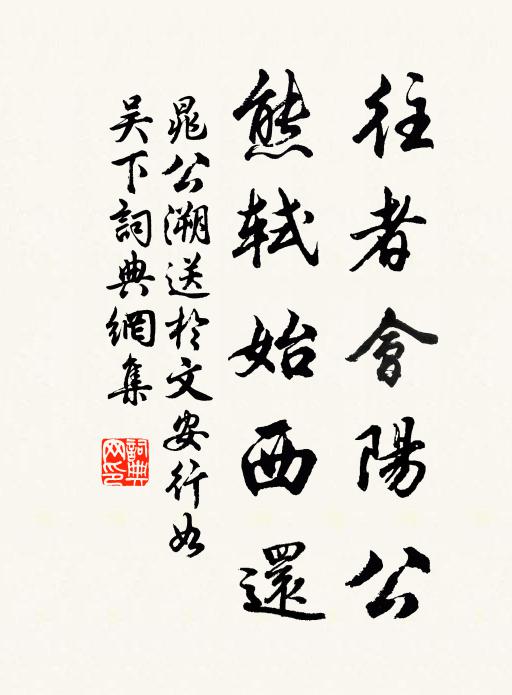 往者會陽公
熊軾始西還
晁公溯送於文安行如
吴下詞典網集
詞典网印